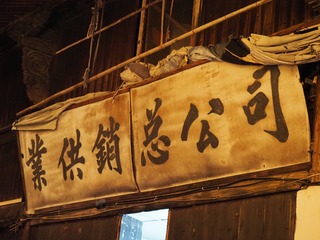 業供銷总公司